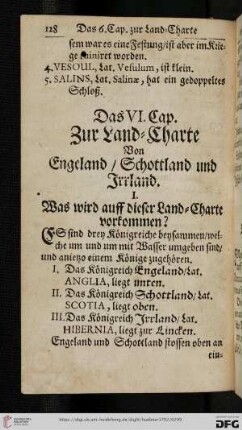 128 Das 6. Cap. zur Land-Charte
sem war es eine Festung/ist aber im Krie-
ge ruiniret worden.
4. VESOUL, Lat. Vesulum, ist klein.
5. SALINS, Lat. Salinæ, hat ein gedoppeltes
Schloß.
Das VI. Cap.
Zur Land-Charte
Von
Engeland / Schottland und
Irrland.
I.
Was wird auff dieser Land-Charte
vorkommen?
ES sind drey Königreiche beysammen/wel-
che um und um mit Wasser umgeben sind/
und anietzo einem Könige zugehören.
I. Das Königreich Engeland/Lat.
ANGLIA, liegt unten.
II. Das Königreich Schottland/ Lat.
SCOTIA, liegt oben.
III. Das Königreich Irrland/ Lat.
HIBERNIA, liegt zur Lincken.
Engeland und Schottland stossen oben an
ein-
DFG